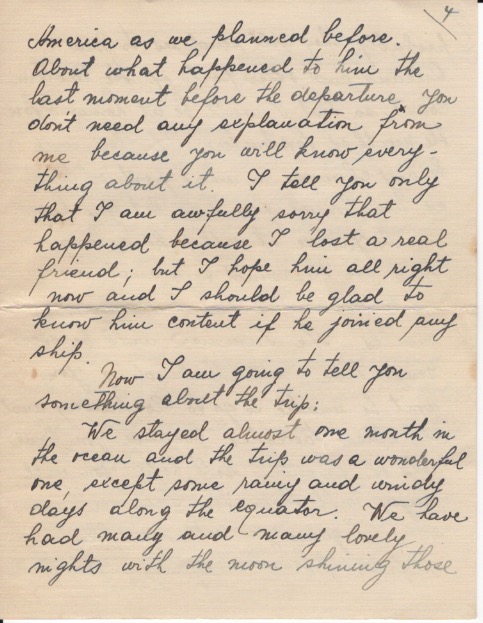 4
America as we planned before.
About what happened to him the
last moment before the departure, you
don't need any explanation from
me because you will know every-
thing about it. I tell you only
that I am awfully sorry that
happened because I lost a real
friend; but I hope him all right
now and I should be glad to
know him content if he joined any
ship.
Now I am going to tell you
something about the trip:
We stayed almost one month in
the ocean and the trip was a wonderful
one, except some rainy and windy
days along the equator. We have
had many and many lovely
nights with the moon shining those